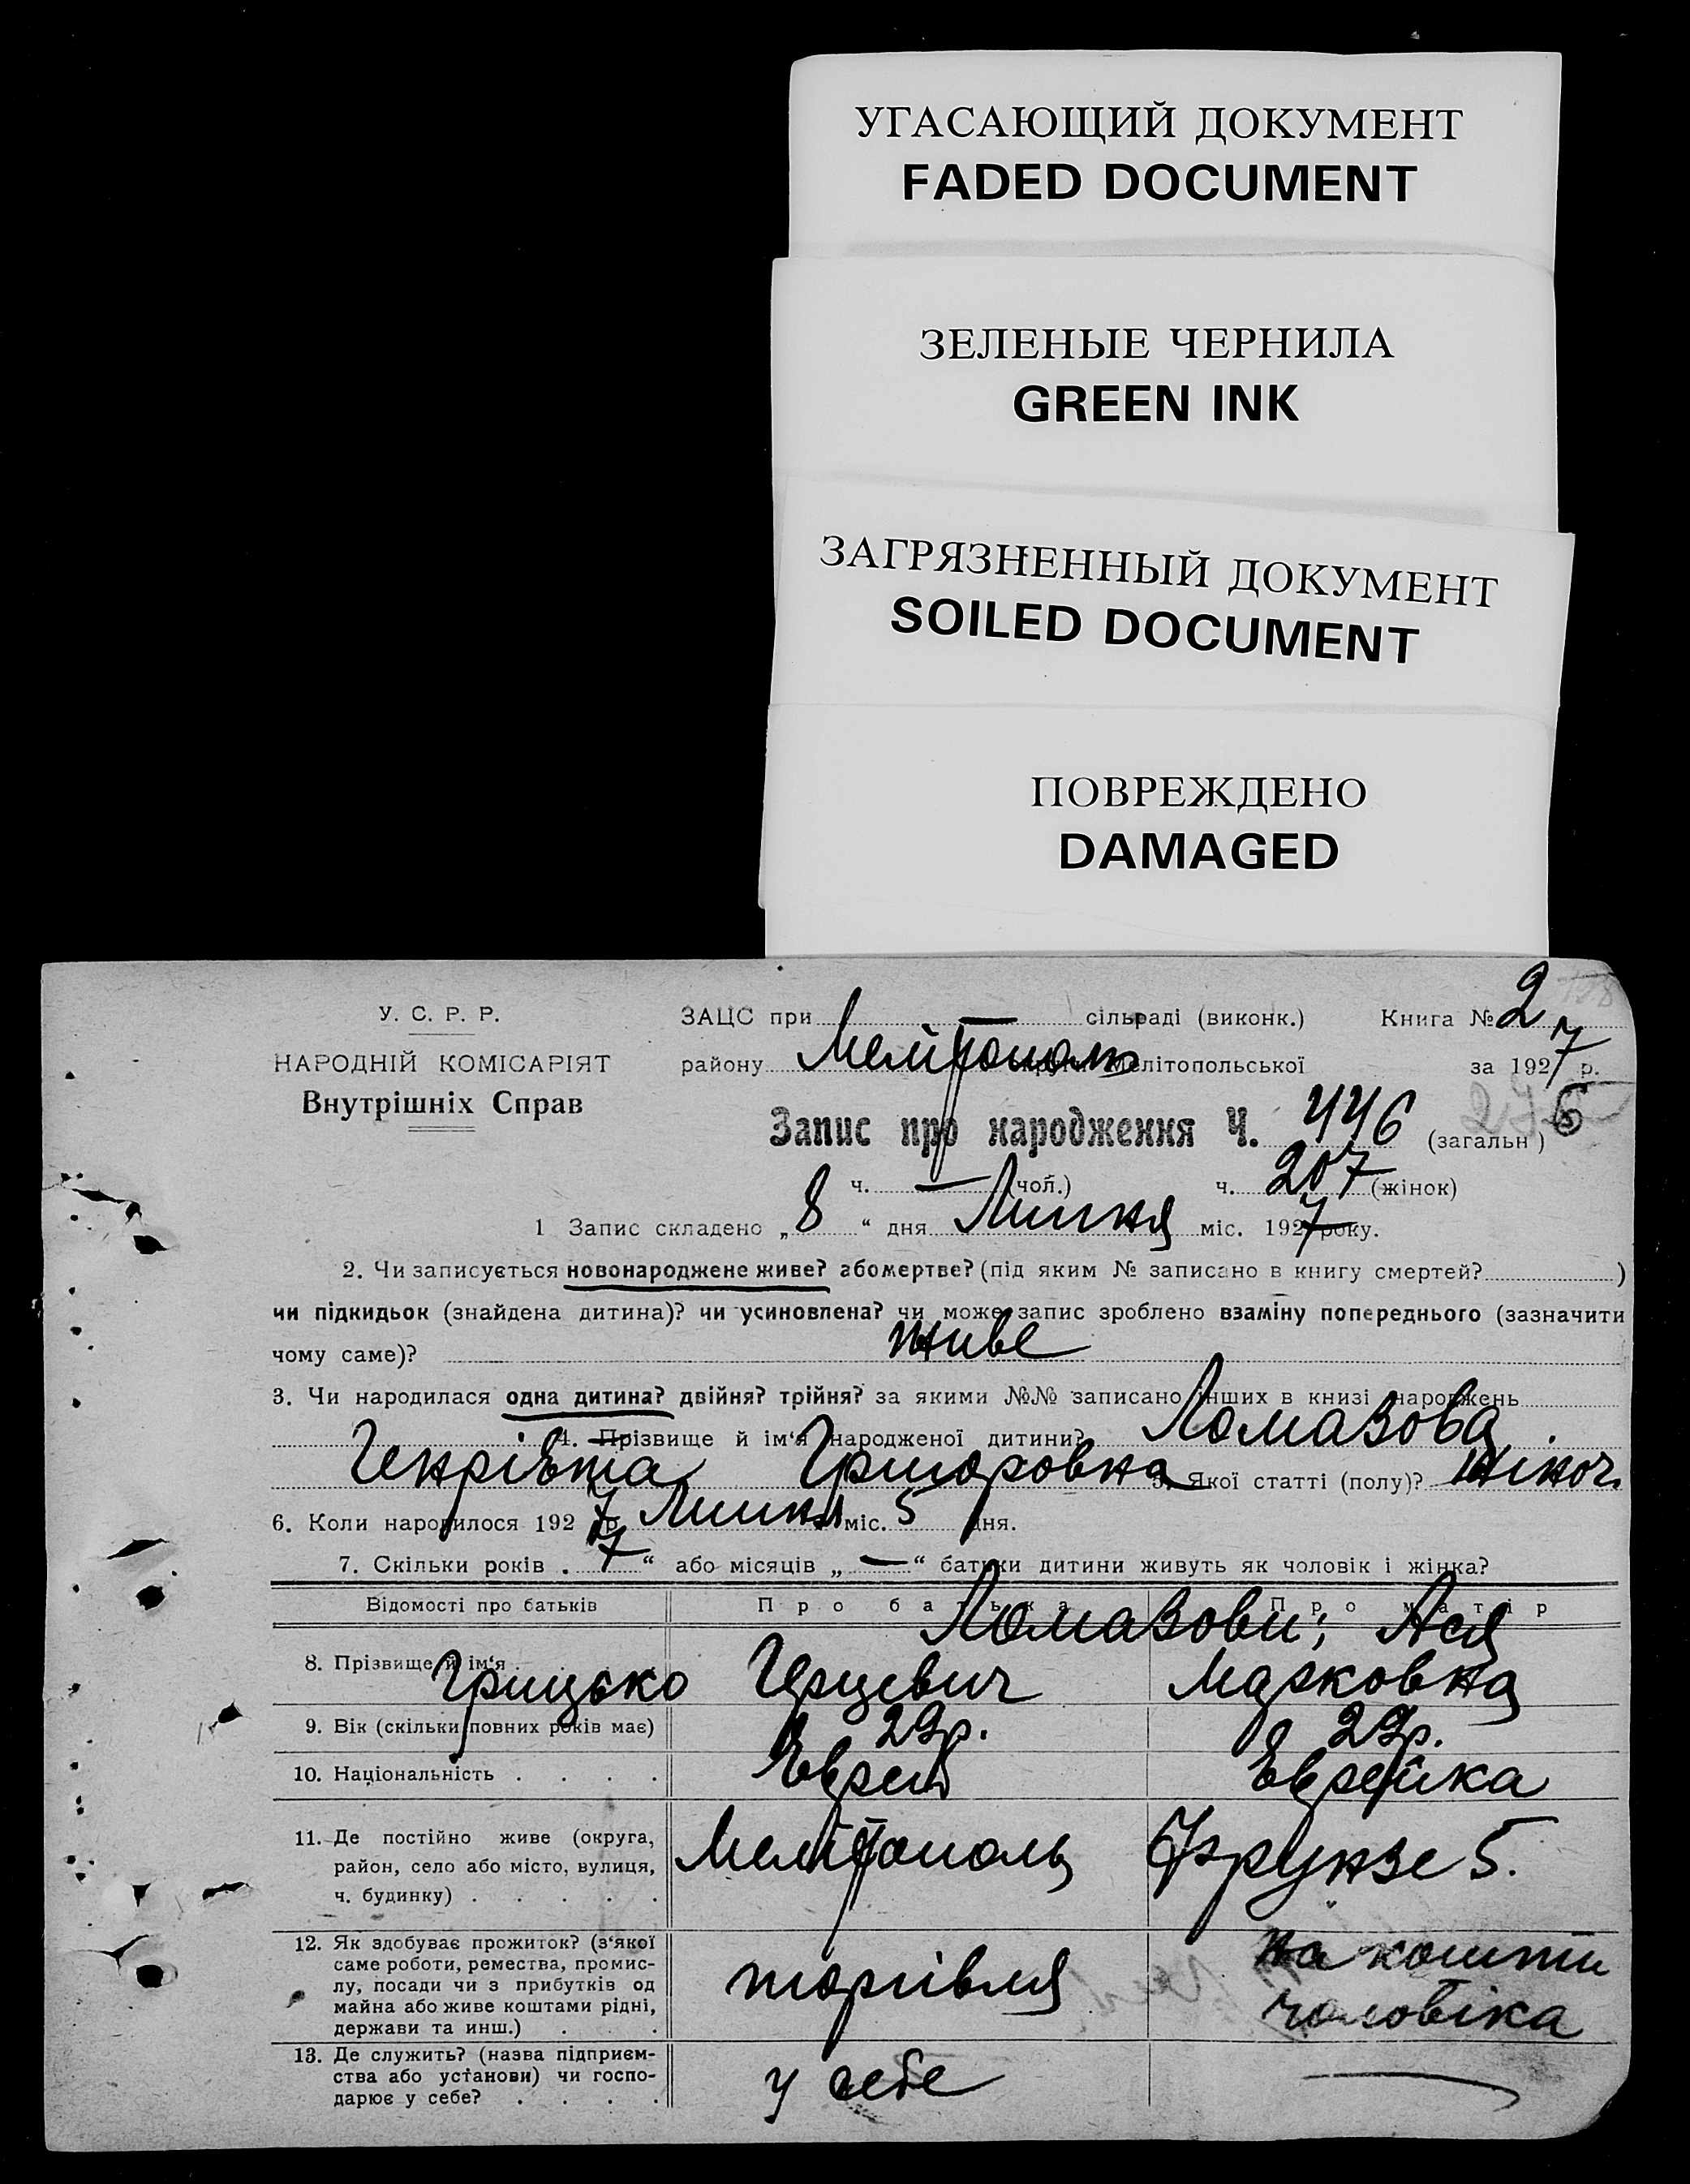 УГАСАЮЩИЙ ДОКУМЕНТ
FADED DOCUMENT
ЗЕЛЕНЫЕ ЧЕРНИЛА
GREEN INK
ЗАГРЯЗНЕННЫЙ ДОКУМЕНТ
SOILED DOCUMENT
ПОВРЕЖДЕНО
DAMAGED
У. С. Р. Р.
НАРОДНІЙ КОМІСАРІЯТ
Внутрішніх Справ
ЗАЦС при — сільраді (виконк.) Книга № 2
району Мелітополь округи Мелітопольської за 1927 р.
Запис про народження Ч. 446 (загальн)
ч. — (чол.) ч. 207 (жінок)
1 Запис складено „8“ дня Липня міс. 1927 року.
2. Чи записується новонароджене живе? або мертве? (під яким № записано в книгу смертей? )
чи підкидьок (знайдена дитина)? чи усиновлена? чи може запис зроблено взаміну попереднього (зазначити
чому саме)? живе
3. Чи народилася одна дитина? двійня? трійня? за якими №№ записано інших в книзі народжень
4. Прізвище й ім‘я народженої дитини? Ломазова
Генріэта Григоровна 5. Якої статті (полу)? жіноч.
6. Коли народилося 1927 р. Липня міс. 5 дня.
7. Скільки років „7“ або місяців „—“ батьки дитини живуть як чоловік і жінка?
Відомості про батьків Про батька Про матір
Ломазови; Ася
8. Прізвище й ім‘я Грицько Герцевич Марковна
9. Вік (скільки повних років має) 29р. 29р.
10. Національність . . . . Еврей Еврейка
11. Де постійно живе (округа,
район, село або місто, вулиця,
ч. будинку) . . . . . Мелітополь Фрунзе 5.
12. Як здобуває прожиток? (з‘якої
саме роботи, ремества, промис-
лу, посади чи з прибутків од
майна або живе коштами рідні,
держави та инш.) . . . торгівля на кошти
чоловіка
13. Де служить? (назва підприєм-
ства або установи) чи госпо-
дарює у себе? . . . . у себе —